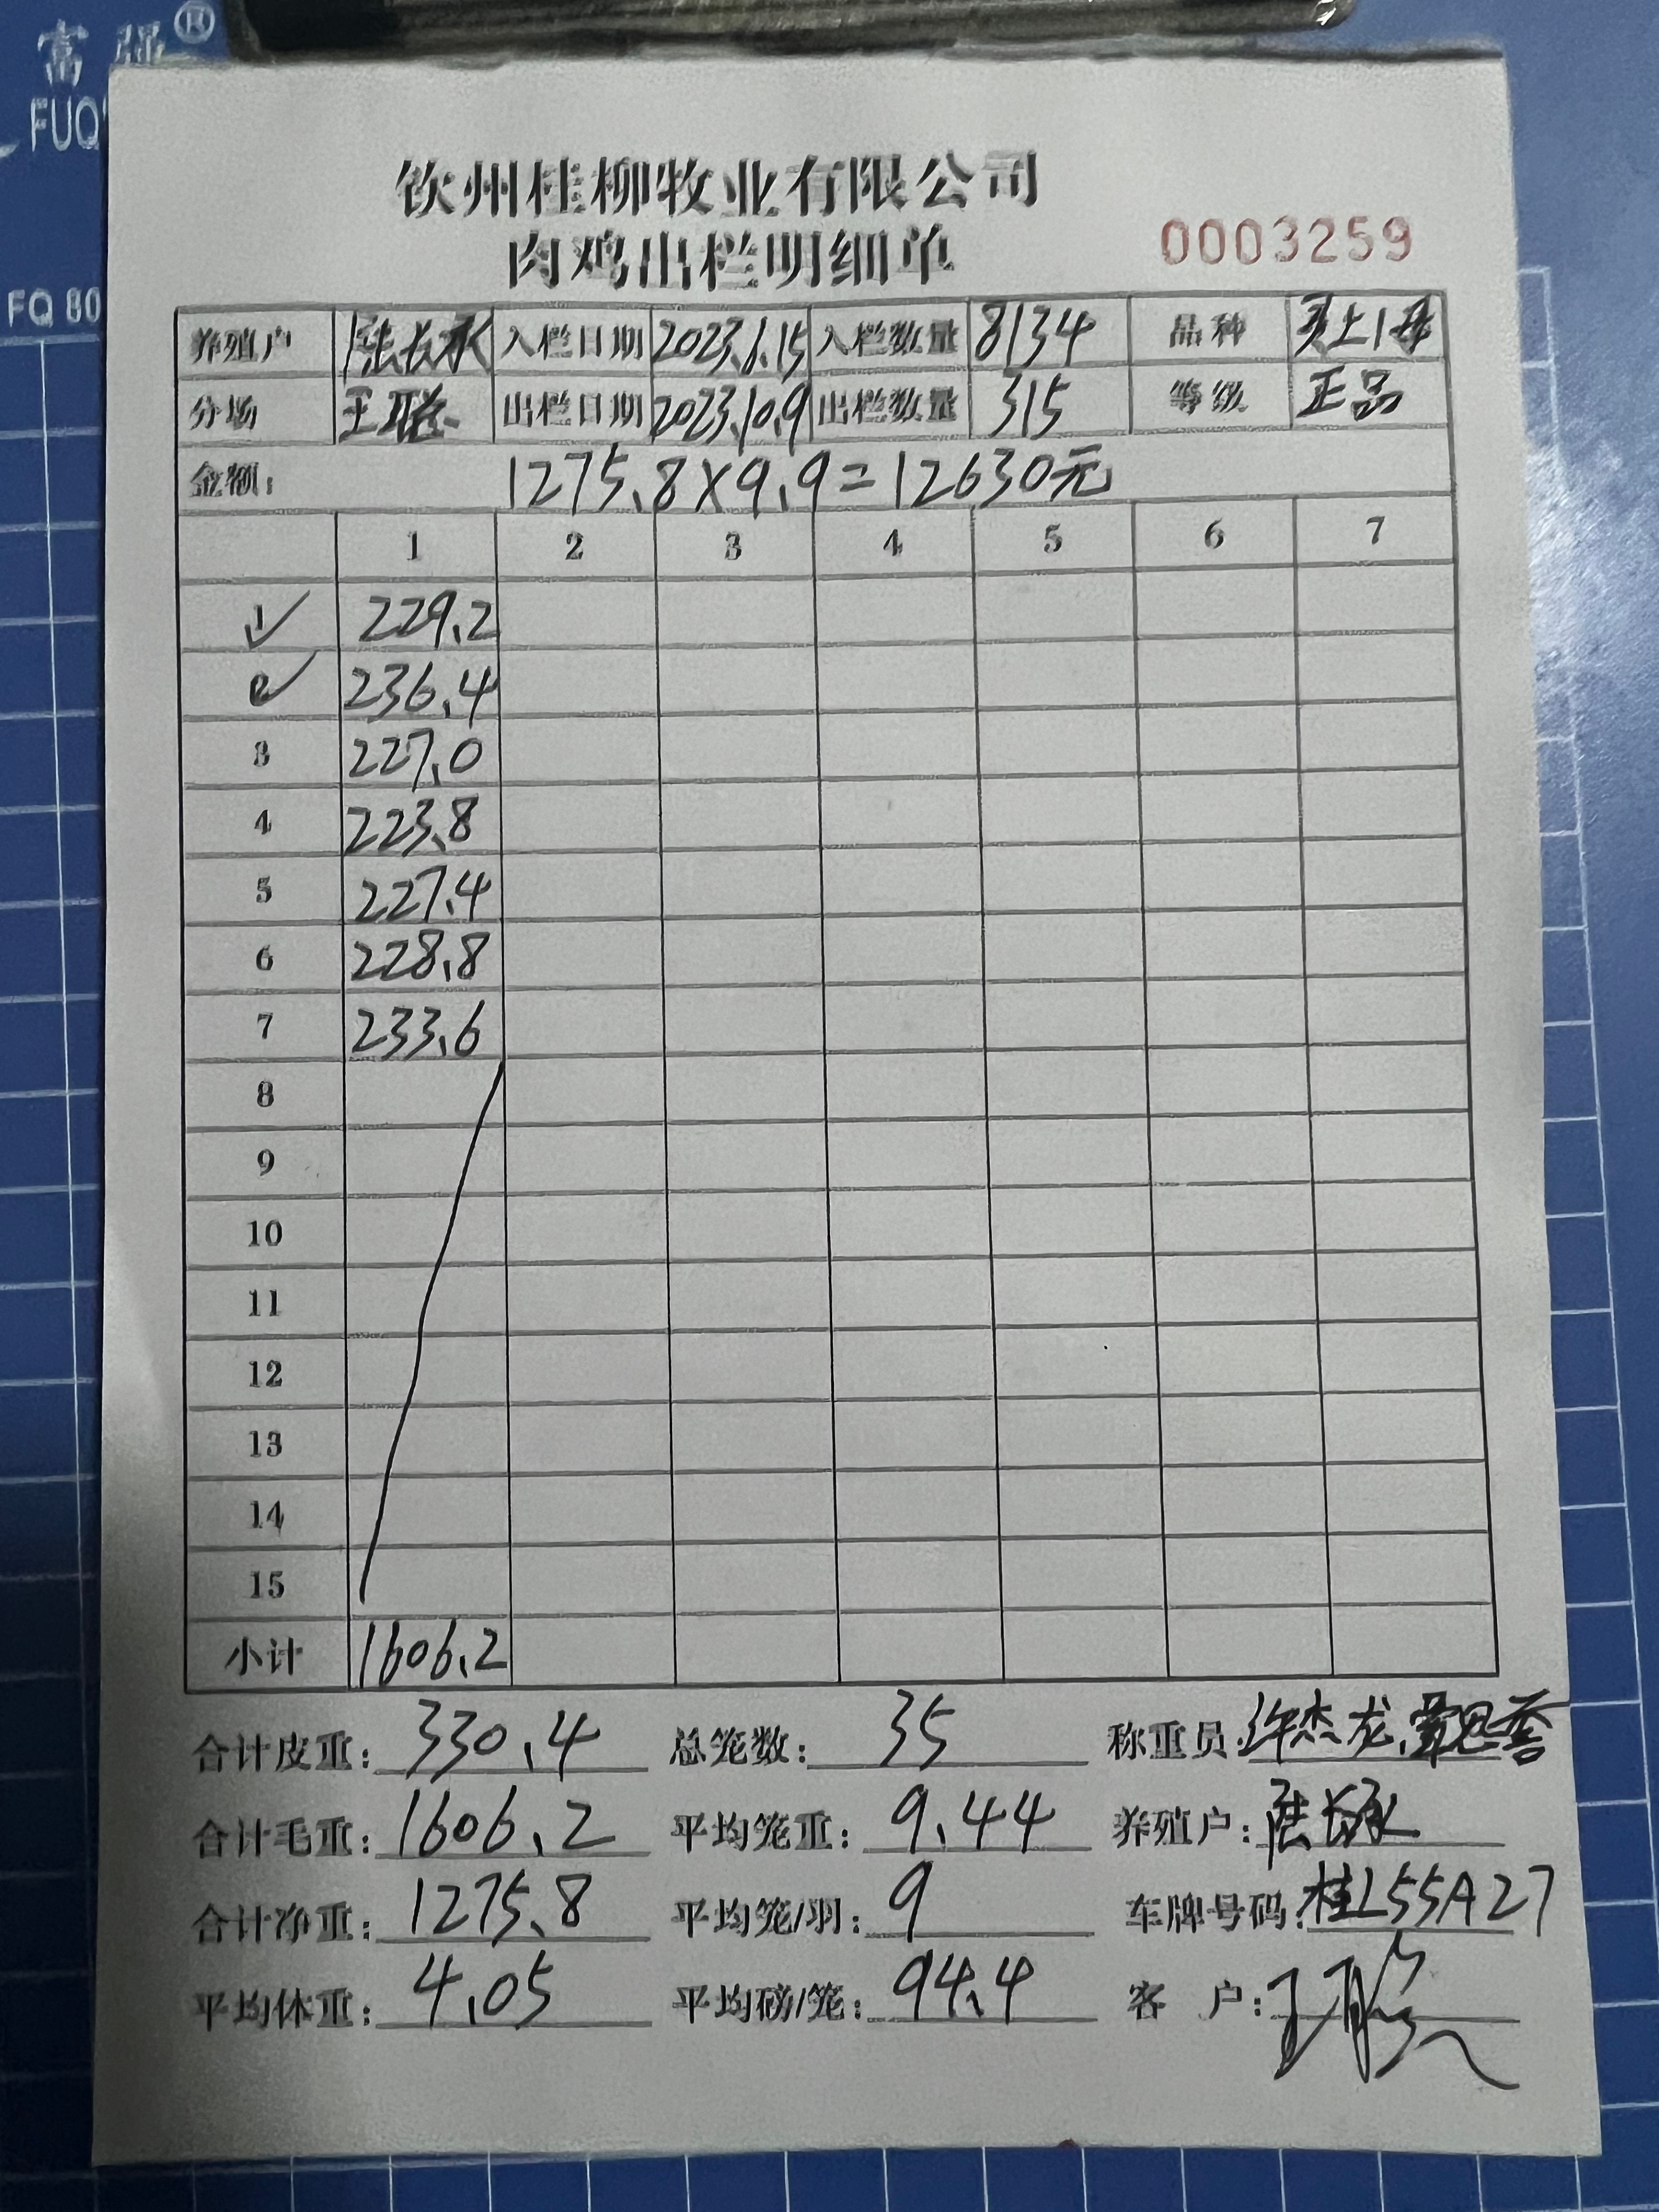 富强®
FUQ
FQ 80
钦州桂柳牧业有限公司
肉鸡出栏明细单 0003259
养殖户 陆长永 入栏日期 2023.6.15 入栏数量 8134 品种
分场 王聪 出栏日期 2023.10.9 出栏数量 315 等级 正品
金额: 1275.8×9.9=12630元
1 2 3 4 5 6 7
1 229.2
2 236.4
3 227.0
4 223.8
5 227.4
6 228.8
7 233.6
8
9
10
11
12
13
14
15
小计 1606.2
合计皮重: 330.4 总笼数: 35 称重员: 许杰龙
合计毛重: 1606.2 平均笼重: 9.44 养殖户: 陆长永
合计净重: 1275.8 平均笼/羽: 9 车牌号码: 桂L55A27
平均体重: 4.05 平均磅/笼: 94.4 客户: